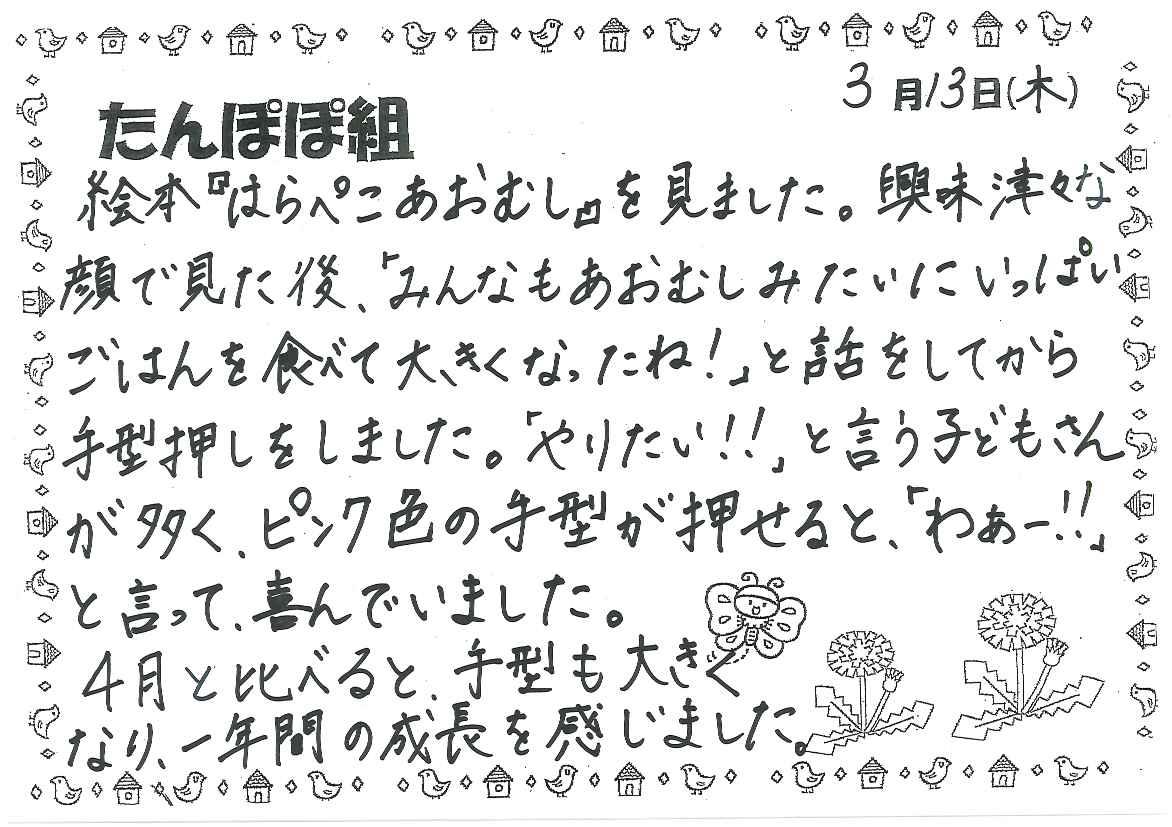 3月13日(木)
たんぽぽ組
絵本『はらぺこあおむし』を見ました。興味津々な
顔で見た後、「みんなもあおむしみたいにいっぱい
ごはんを食べて大きくなったね!」と話をしてから
手型押しをしました。「やりたい!!」と言う子どもさん
が多く、ピンク色の手型が押せると、「わぁー!!」
と言って、喜んでいました。
4月と比べると、手型も大きく
なり、一年間の成長を感じました。